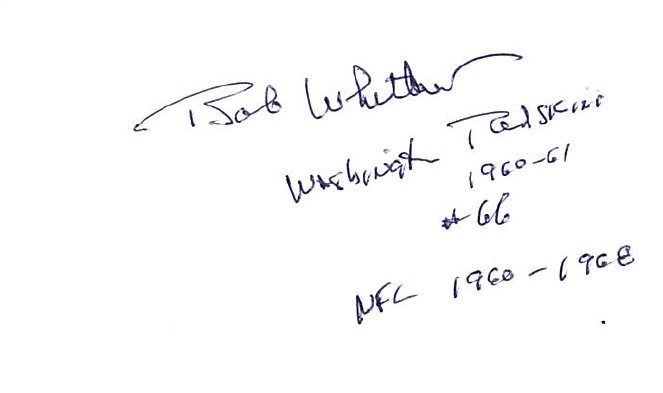 Bob Whitlow
Washington Redskins
1960-61
#66
NFL 1960-1968